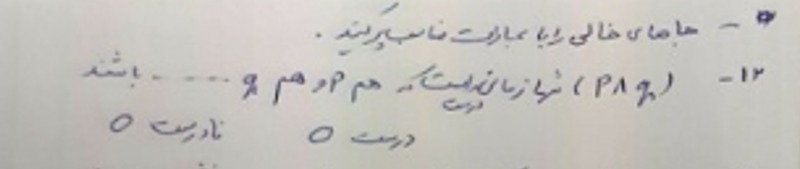 * - جاهای خالی را با عبارت مناسب پر کنید .
۱۲- (P∧q) تنها زمانی درست است که هم P و هم q ..... باشند
درست ○ نادرست ○